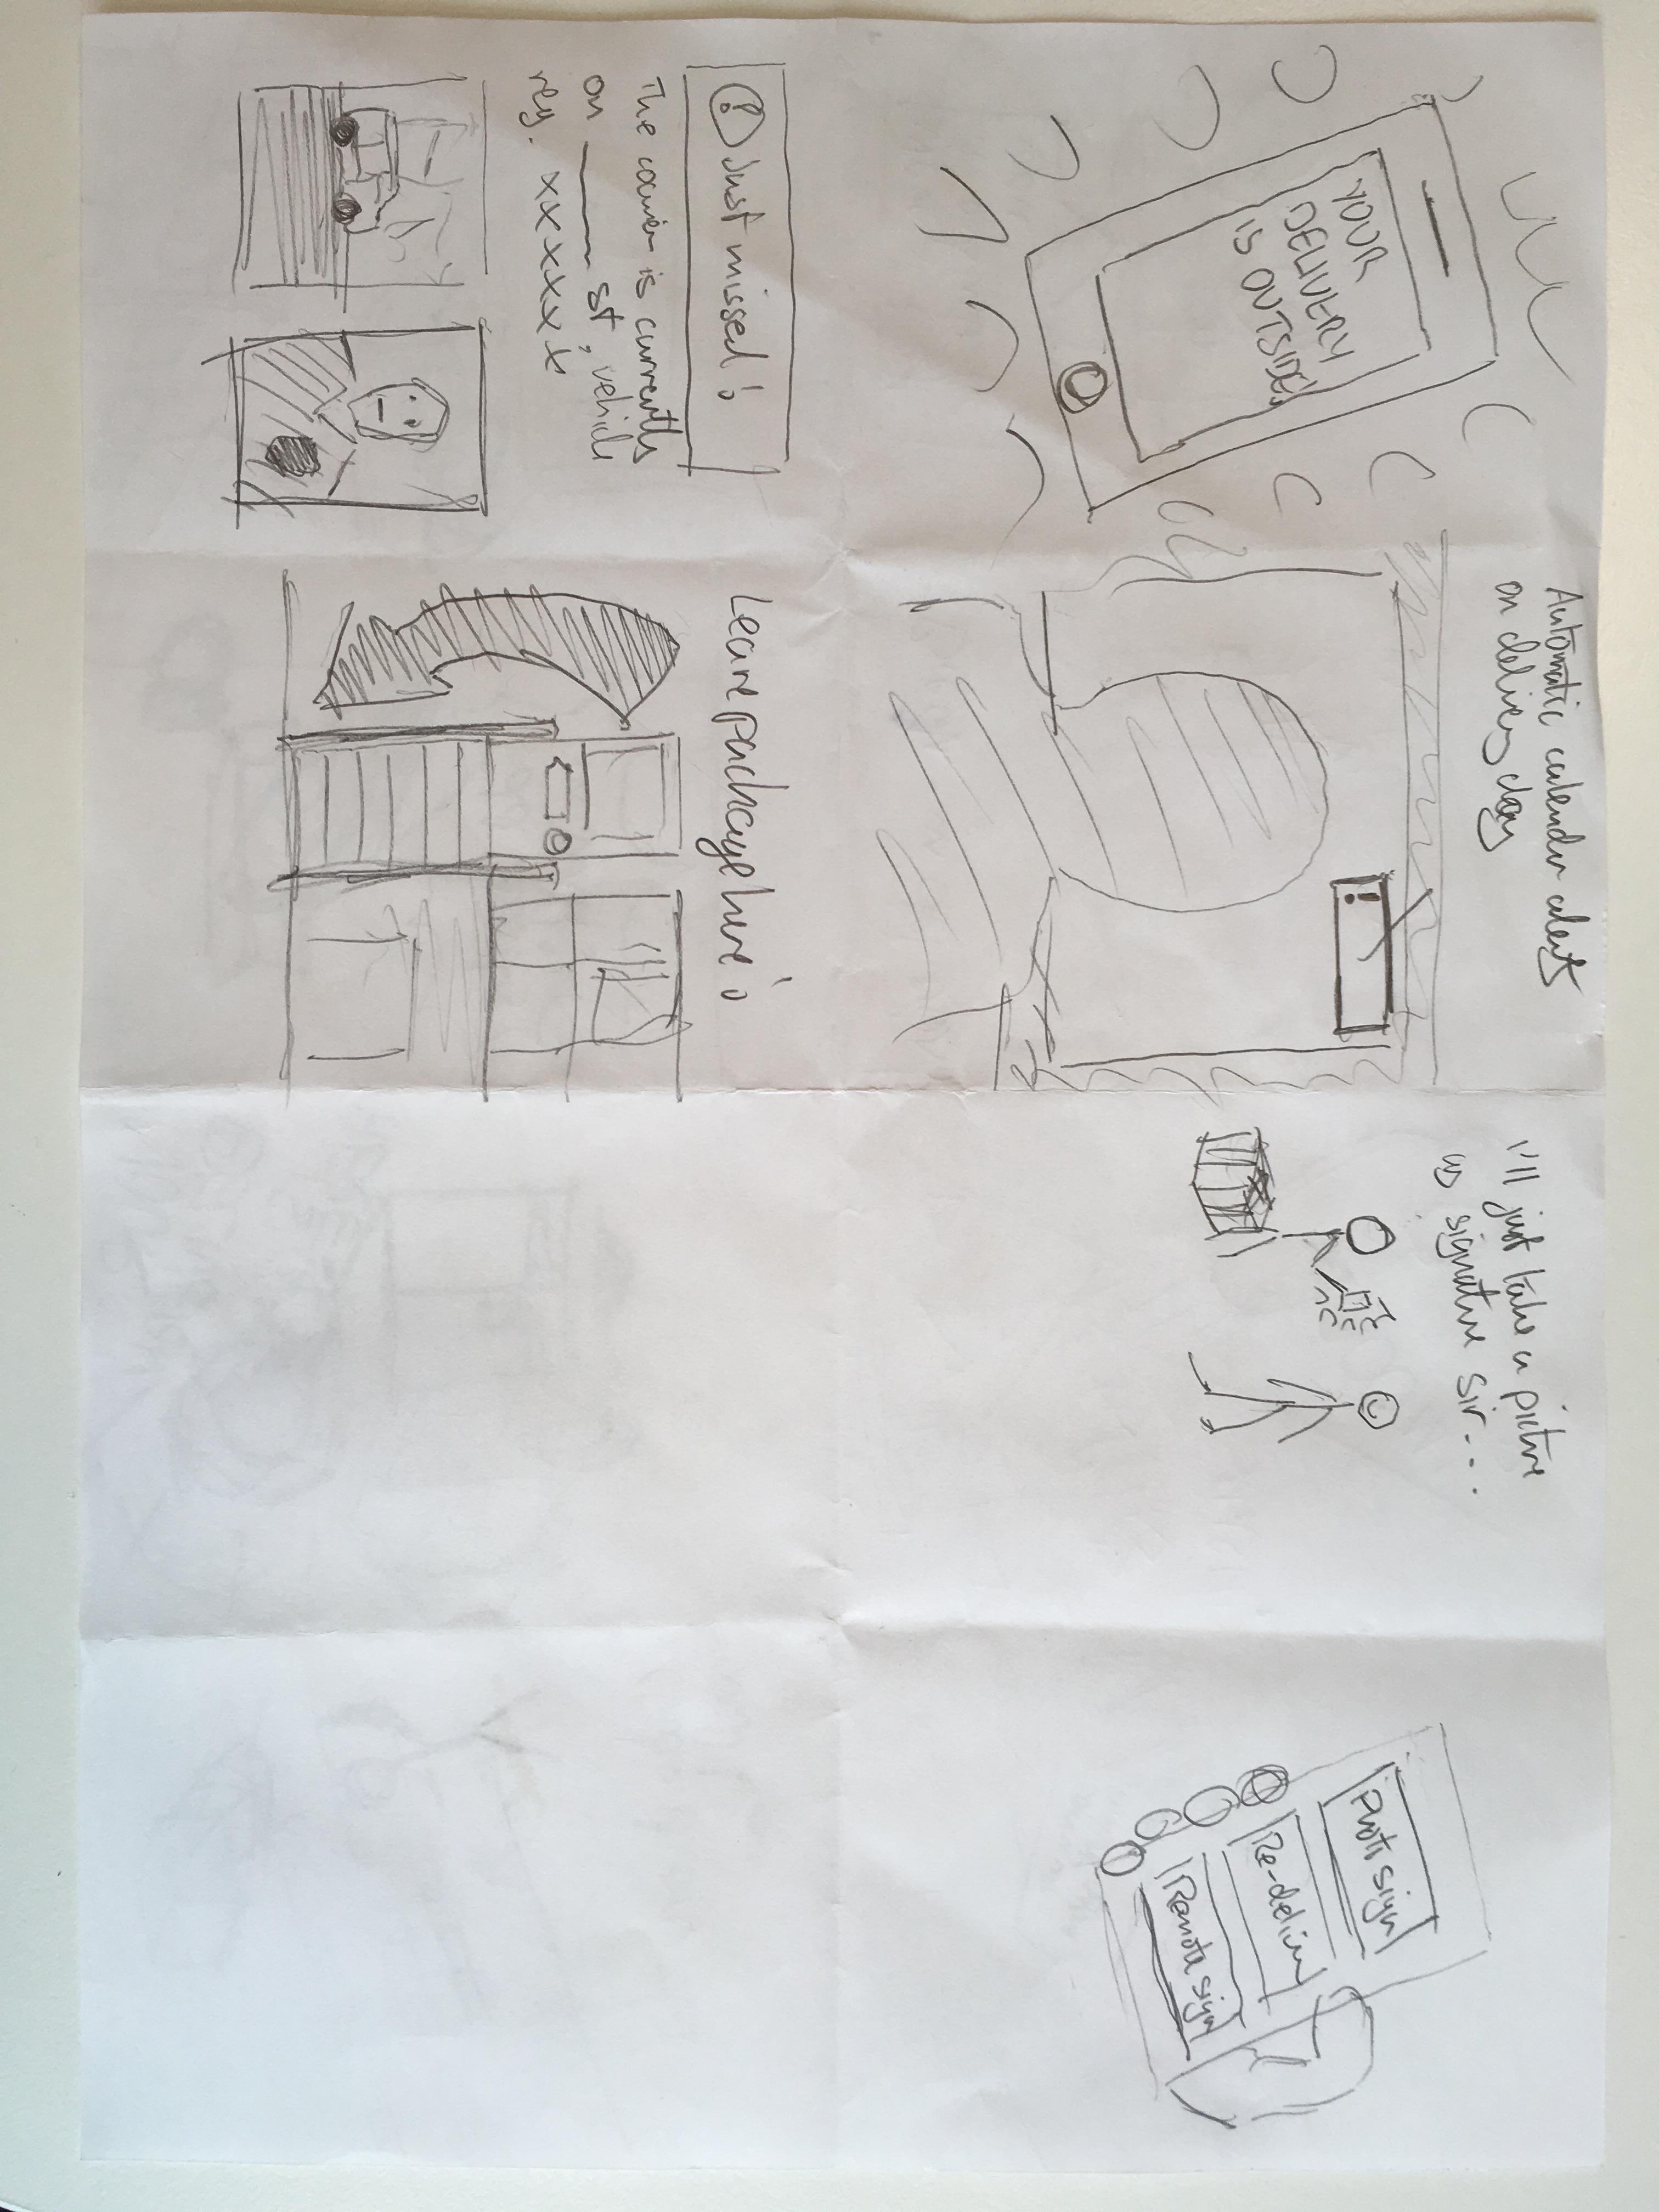 YOUR
DELIVERY
IS OUTSIDE!
Automatic calender alerts
on delivery day
!
I'll just take a picture
as signature sir...
Photo sign
Re-deliver
Remote sign
! Just missed!
The courier is currently
on ____ st, vehicle
reg. xxxxxx
Leave package here!